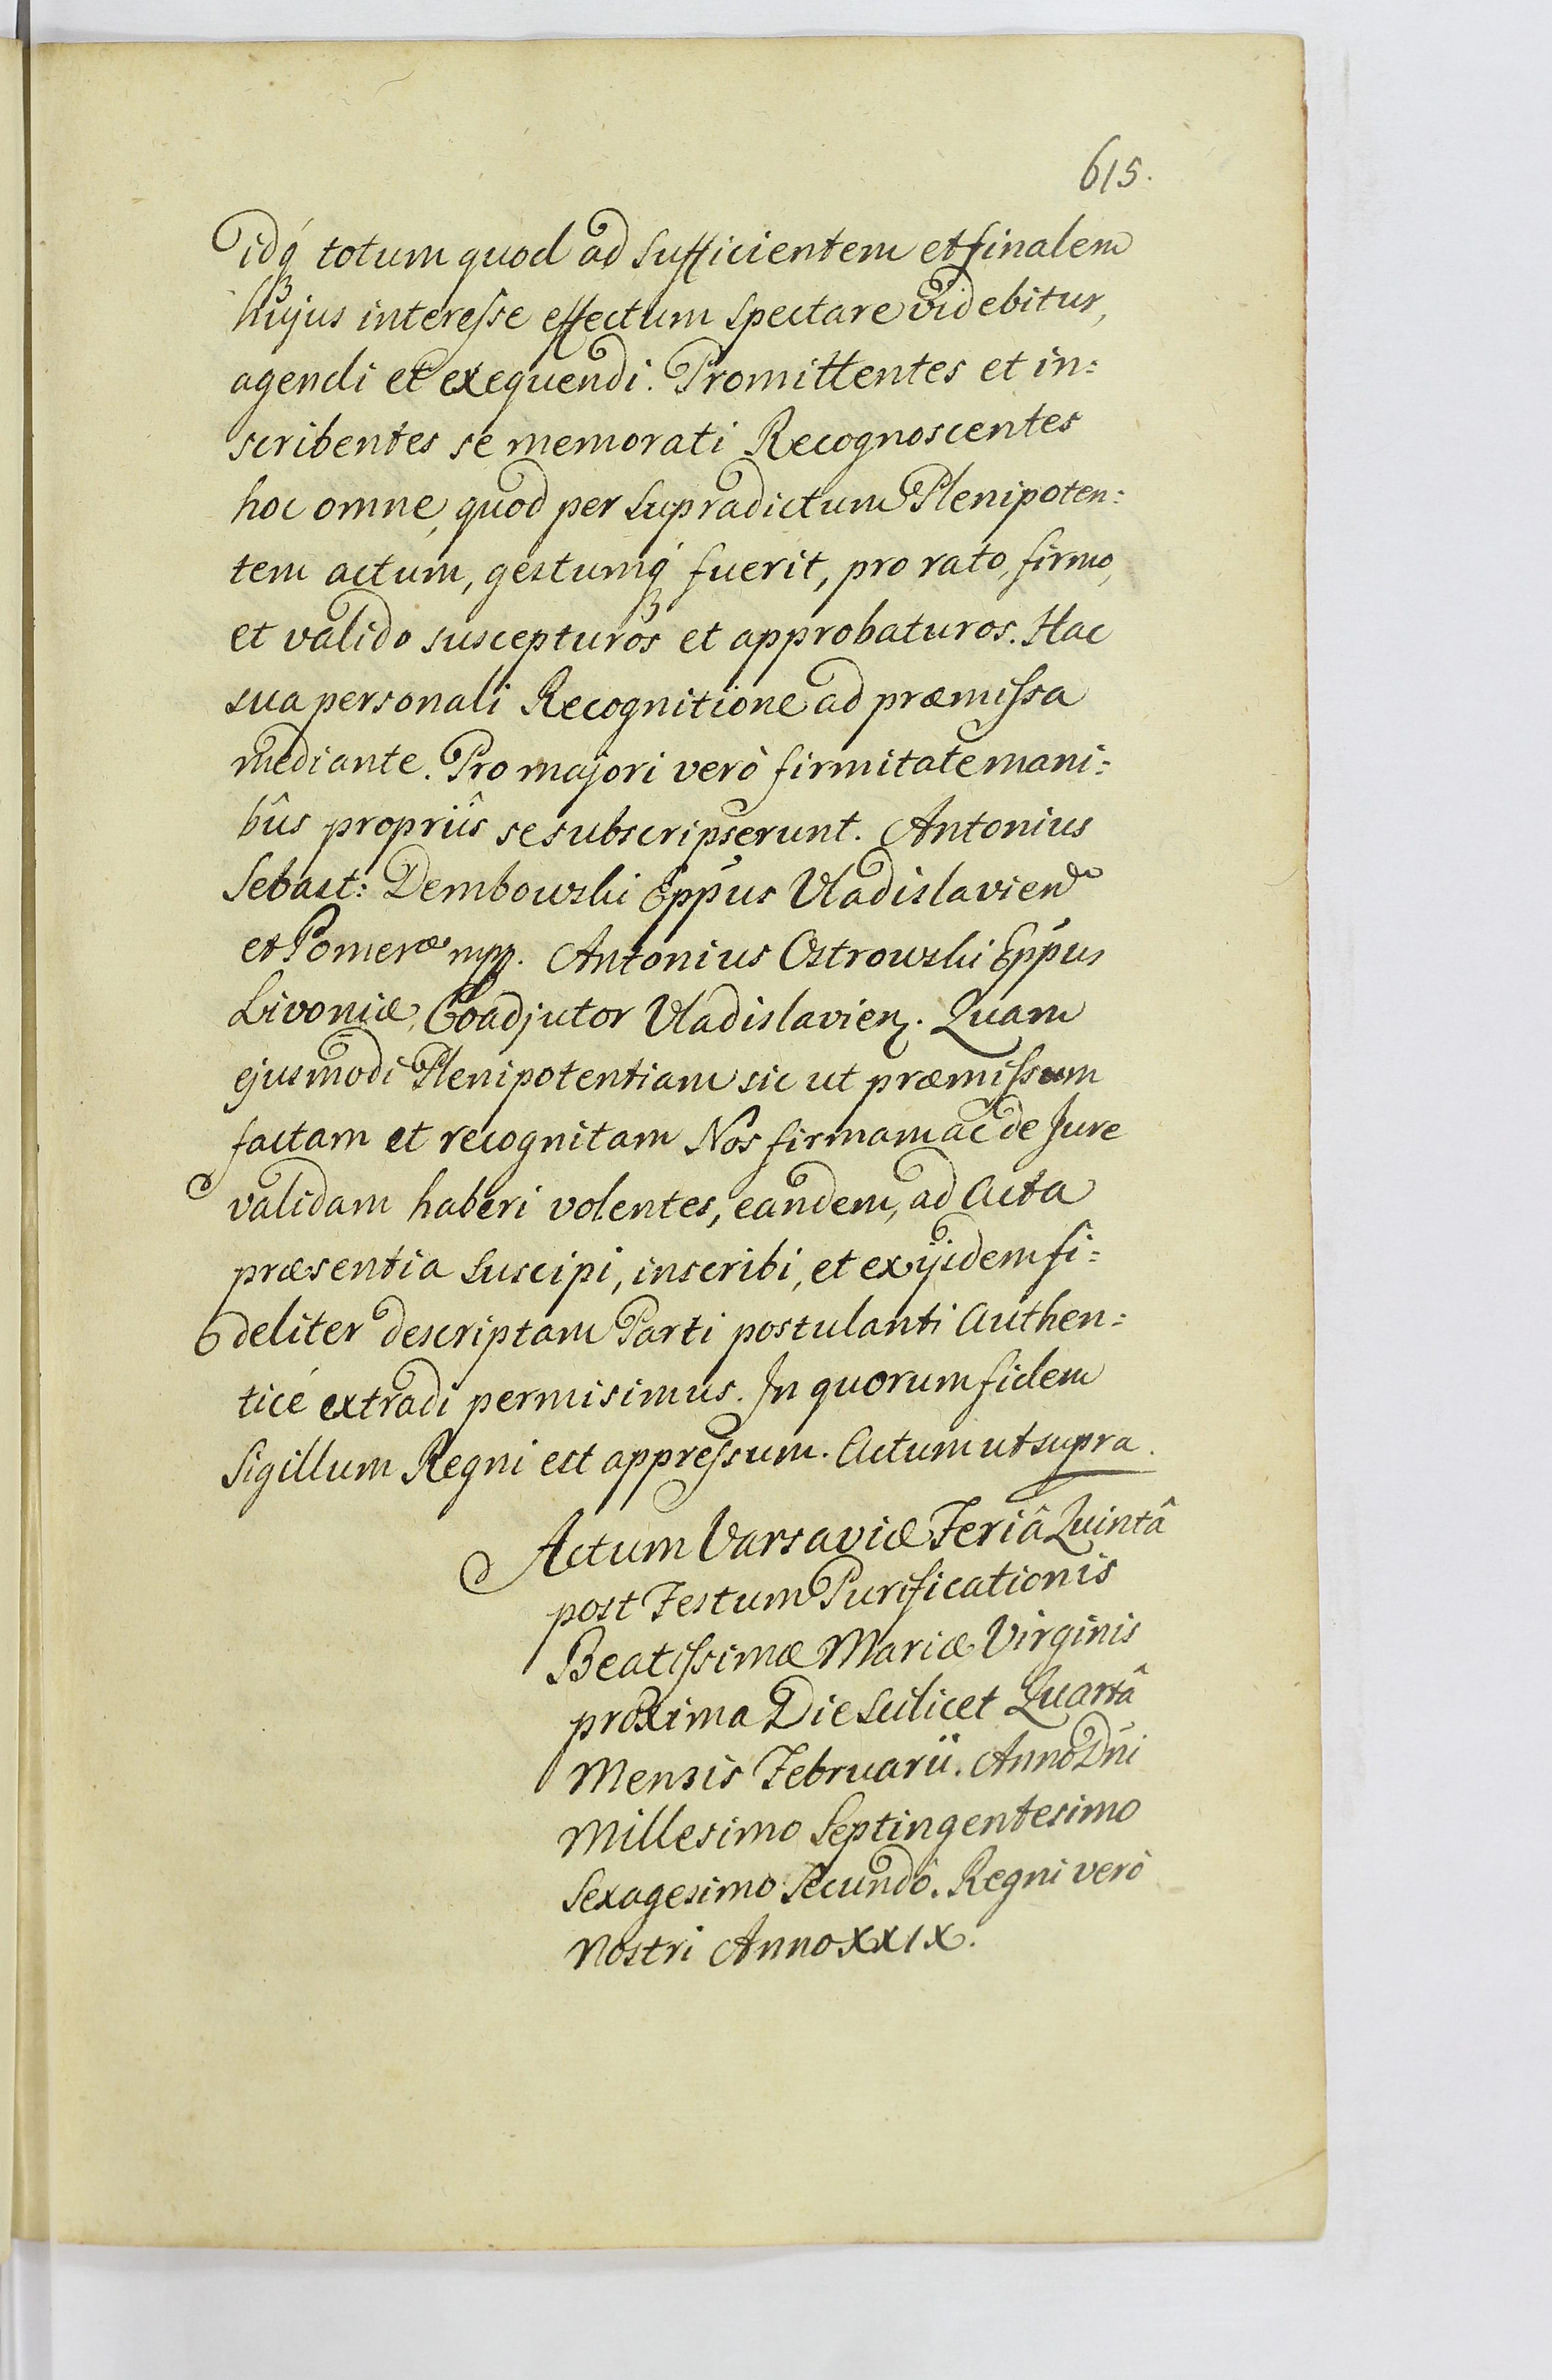 615.
idq́ totum quod ad sufficientem et finalem
hujus interesse effectum spectare videbitur,
agendi et exequendi. Promittentes et in=
scribentes se memorati Recognoscentes
hoc omne, quod per supradictum Plenipoten:
tem actum, gestumq́ fuerit, pro rato, firmo,
et valido suscepturos et approbaturos. Hac
sua personali Recognitione ad præmissa
mediante. Pro majori verò firmitate mani=
bûs propriîs se subscripserunt. Antonius
Sebast: Dembowski Eppus Vladislavien
et Pomeræ mpp. Antonius Ostrowski Eppus
Livoniæ, Coadjutor Vladislavien. Quam
ejusmodi Plenipotentiam sic ut præmissum
factam et recognitam Nos firmam ac de Jure
validam haberi volentes, eandem, ad Acta
præsentia suscipi, inscribi, et ex ijsdem fi=
deliter descriptam Parti postulanti Authen=
ticé extradi permisimus. In quorum fidem
Sigillum Regni est appressum. Actum ut supra.
Actum Varsaviæ Feriâ Quintâ
post Festum Purificationis
Beatissimæ Mariæ Virginis
proxima Die scilicet Quartâ
Mensis Februarii. Anno Dni
Millesimo Septingentesimo
Sexagesimo Secundô. Regni verò
Nostri Anno XXIX.